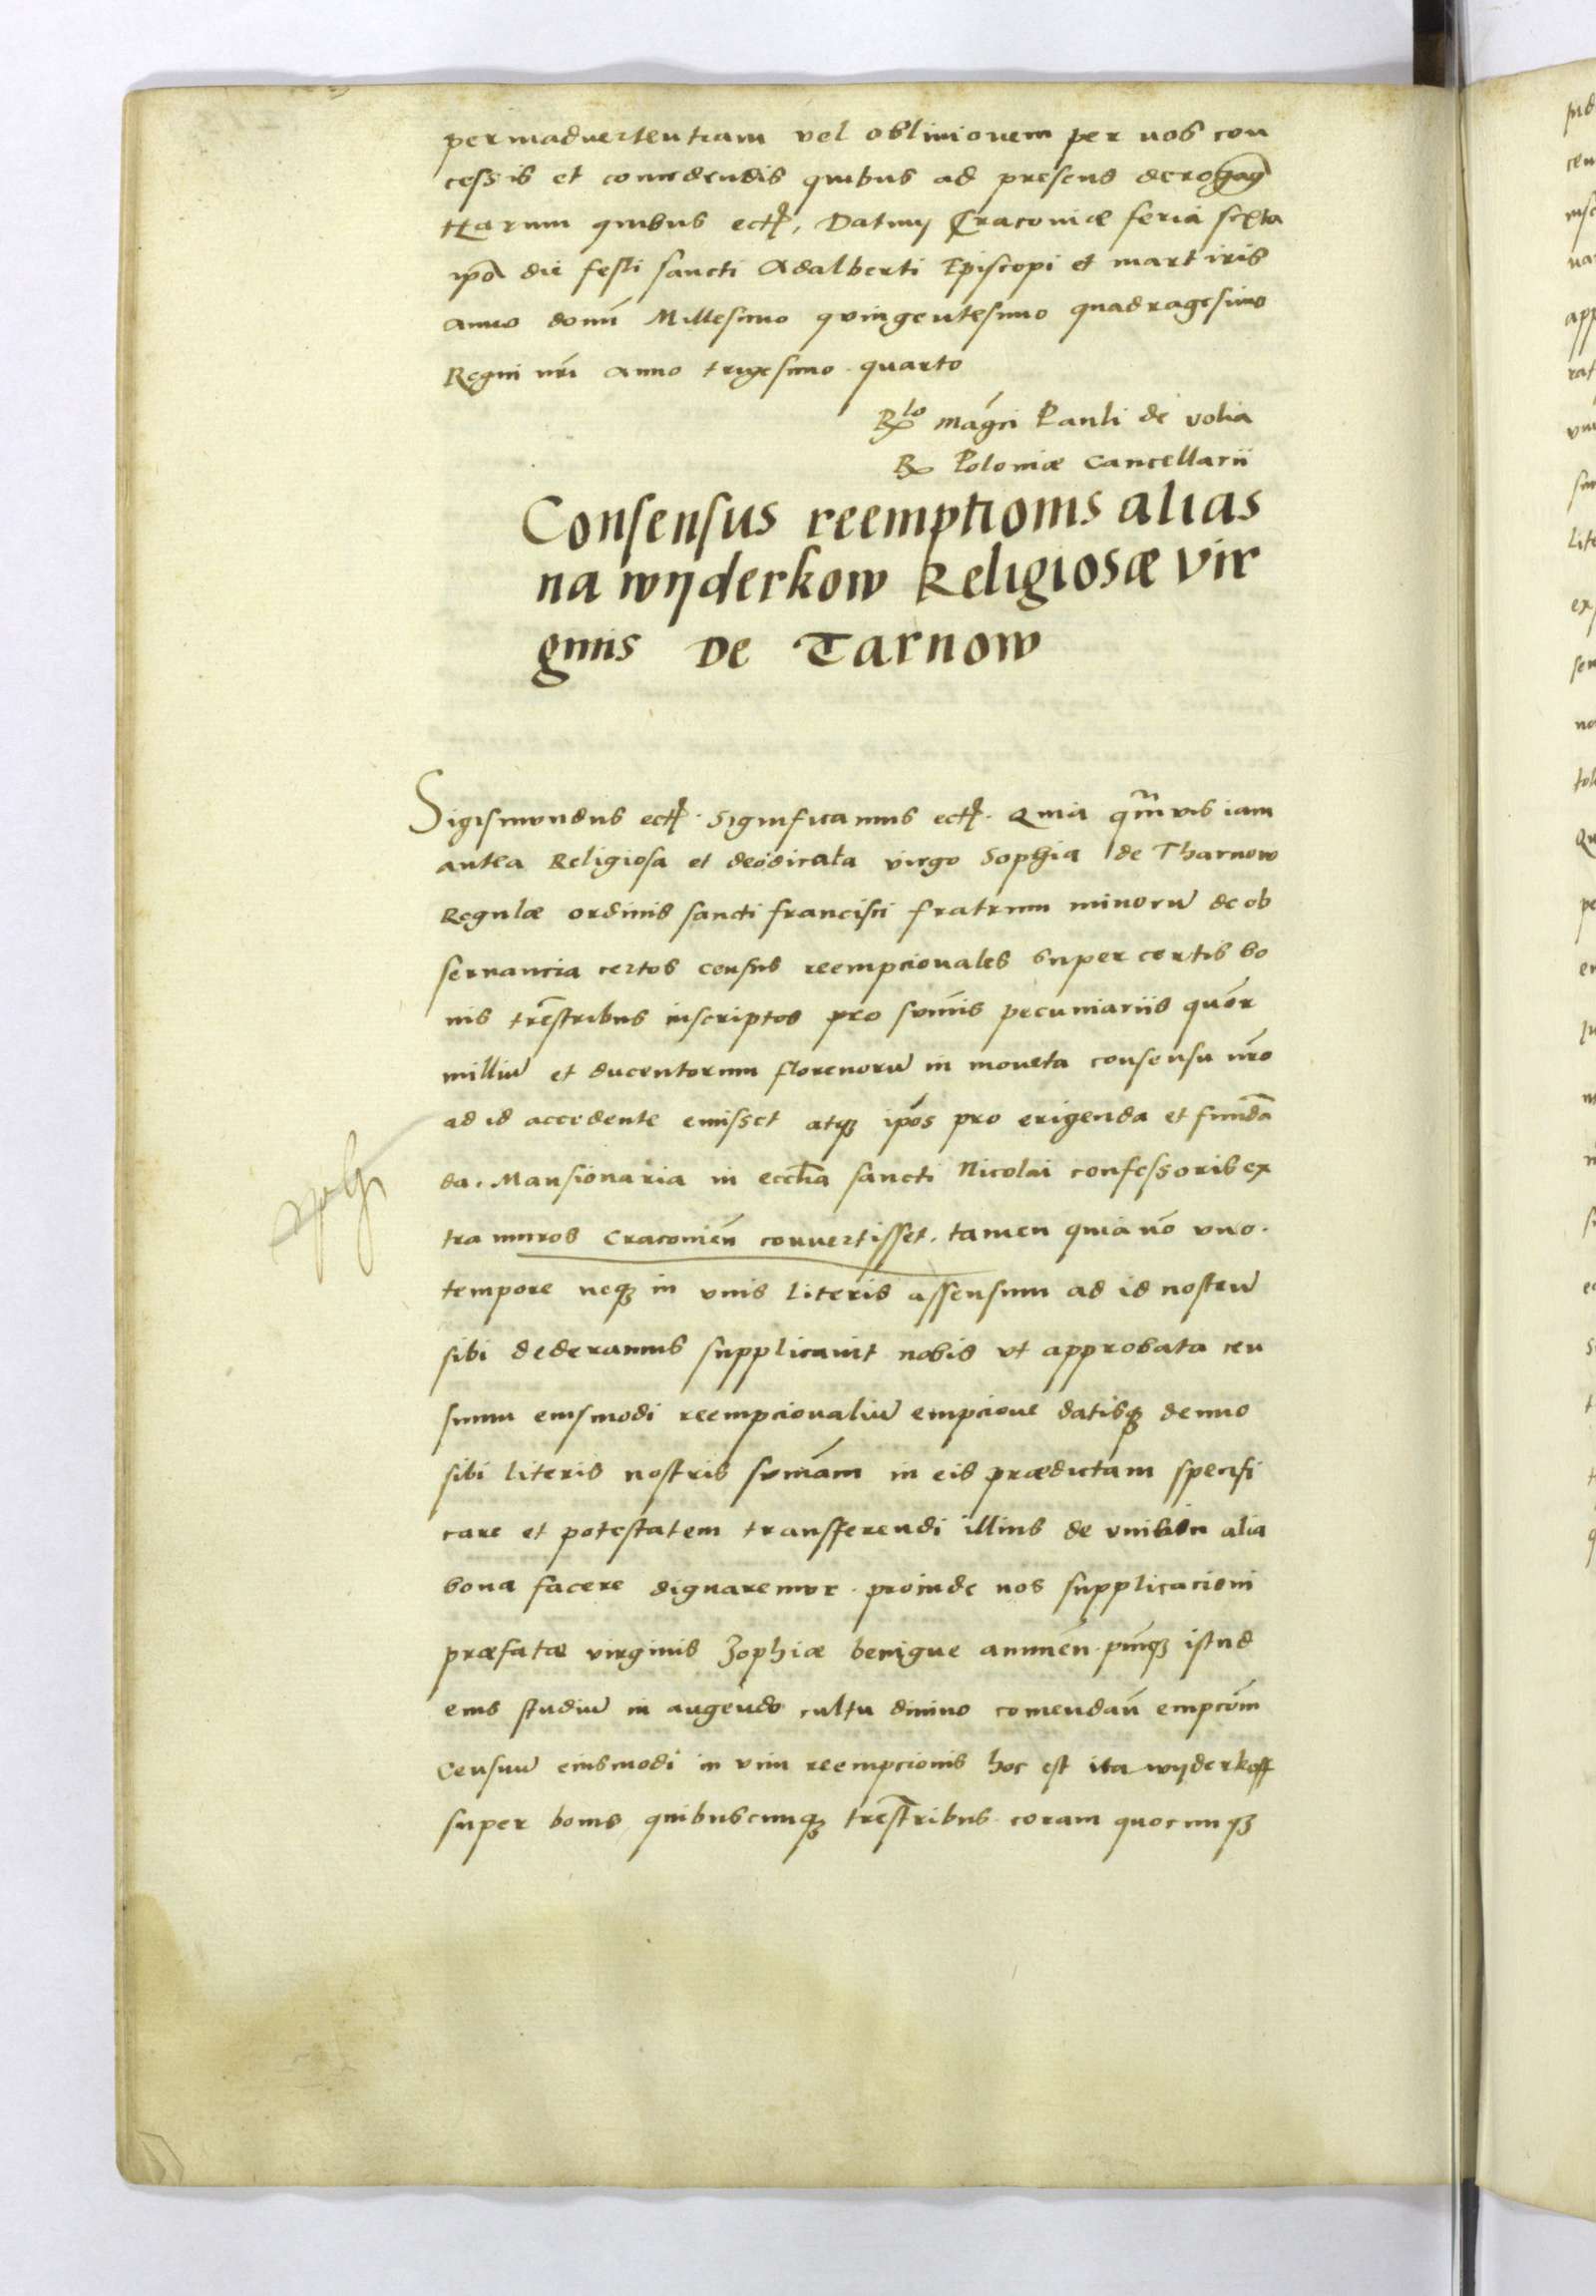 per inadvertentiam vel oblivionem per nos con
cessis et concedendis quibus ad presens derogag
Harum quibus ectꝭ, Datum Cracoviæ feria sexta
ipõ die festi sancti Adalberti Episcopi et martiris
anno domñi Millesimo quingentesimo quadragesimo
Regni nr̃i anno trigesimo quarto
R lo magci Pauli de volia
R Poloniæ Cancellarii
Consensus reemptionis alias
na wÿderkow Religiosæ vir
ginis De Tarnow
Sigismundus ectꝭ. Significamus ectꝭ. Quia qm̃vis iam
antea Religiosa et deodicata virgo Sophia de Tharnow
Regulæ ordinis sancti francisci fratrum minorũ de ob
servancia certos census reempcionales super certis bo
nis trẽstribus inscriptos pro sum̃is pecuniariis quõr
milliũ et ducentorum florenorũ in moneta consensu nr̃o
ad id accedente emisset atqꝫ ipõs pro erigenda et funda
da. Mansionaria in eccłia sancti Nicolai confessoris ex
tra muros Cracovieñ convertisset. tamen quia nõ uno.
tempore neqꝫ in unis literis assensum ad id nostrũ
sibi dederamus supplicavit nobis ut approbata cen
suum eiusmodi reempcionaliũ empcione datisqꝫ denuo
sibi literis nostris sum̃am in eis prædictam specifi
care et potestatem transferendi illius de unis in alia
bona facere dignaremur. proinde nos supplicacioni
præfatæ virginis Zophiæ benigne annueñ. piumqꝫ istud
eius studiũ in augendo cultu divino comendañ empcõm
Censuũ eiusmodi in vim reempcionis hoc est ita wÿderkoff
super bonis quibuscunqꝫ trẽstribus coram quocunqꝫ